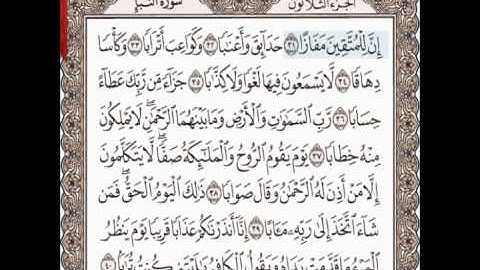 الجزء الثلاثون سورة النبإ
إِنَّ لِلْمُتَّقِينَ مَفَازًا ٣١ حَدَآئِقَ وَأَعْنَٰبًا ٣٢ وَكَوَاعِبَ أَتْرَابًا ٣٣ وَكَأْسًا
دِهَاقًا ٣٤ لَّا يَسْمَعُونَ فِيهَا لَغْوًا وَلَا كِذَّٰبًا ٣٥ جَزَآءً مِّن رَّبِّكَ عَطَآءً
حِسَابًا ٣٦ رَّبِّ ٱلسَّمَٰوَٰتِ وَٱلْأَرْضِ وَمَا بَيْنَهُمَا ٱلرَّحْمَٰنِ ۖ لَا يَمْلِكُونَ
مِنْهُ خِطَابًا ٣٧ يَوْمَ يَقُومُ ٱلرُّوحُ وَٱلْمَلَٰٓئِكَةُ صَفًّا ۖ لَّا يَتَكَلَّمُونَ
إِلَّا مَنْ أَذِنَ لَهُ ٱلرَّحْمَٰنُ وَقَالَ صَوَابًا ٣٨ ذَٰلِكَ ٱلْيَوْمُ ٱلْحَقُّ ۖ فَمَن
شَآءَ ٱتَّخَذَ إِلَىٰ رَبِّهِۦ مَـَٔابًا ٣٩ إِنَّآ أَنذَرْنَٰكُمْ عَذَابًا قَرِيبًا يَوْمَ يَنظُرُ
ٱلْمَرْءُ مَا قَدَّمَتْ يَدَاهُ وَيَقُولُ ٱلْكَافِرُ يَٰلَيْتَنِى كُنتُ تُرَٰبًۢا ٤٠